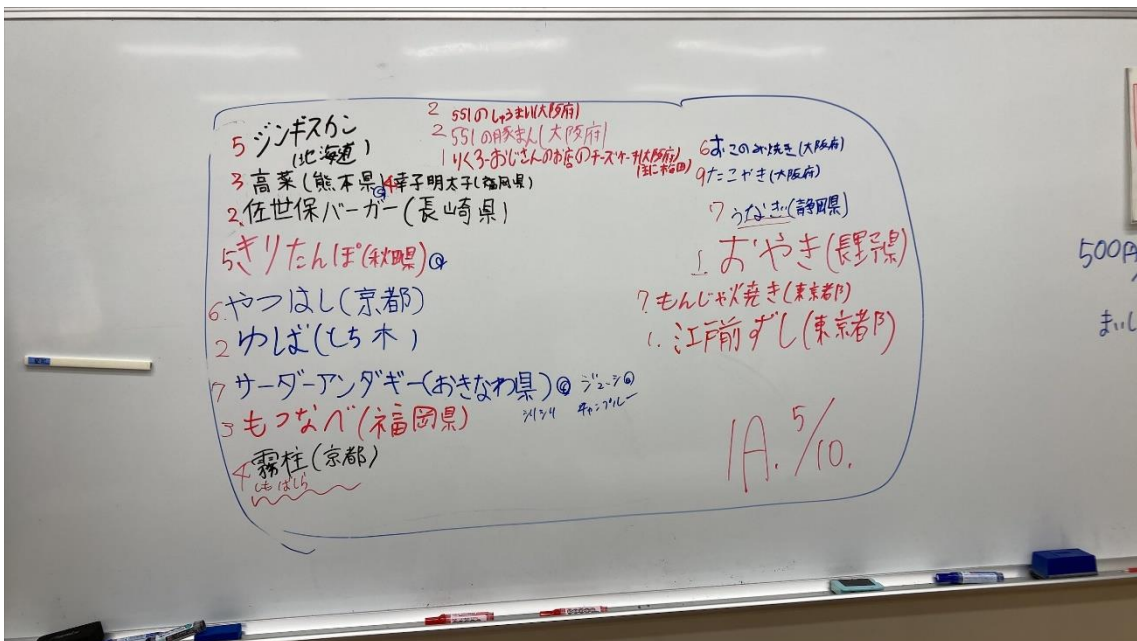 5 ジンギスカン
(北海道)
3 高菜(熊本県) 4 辛子明太子(福岡県)
2. 佐世保バーガー(長崎県)
5 きりたんぽ(秋田県)
6. やつはし(京都)
2 ゆば(とち木)
7 サーダーアンダギー(おきなわ県)⑥ ジューシ⑥
シリシリ チャンプルー
3 もつなべ(福岡県)
4 霧柱(京都)
しもばしら
2 551のしゅうまい(大阪府)
2 551の豚まん(大阪府)
1 りくろーおじさんのお店のチーズケーキ(大阪府)
6 おこのみ焼き(大阪府)
9 たこやき(大阪府)
7 うなぎ(静岡県)
1. おやき(長野県)
7. もんじゃ焼き(東京都)
1. 江戸前ずし(東京都)
1A. 5/10.
500円
まいし